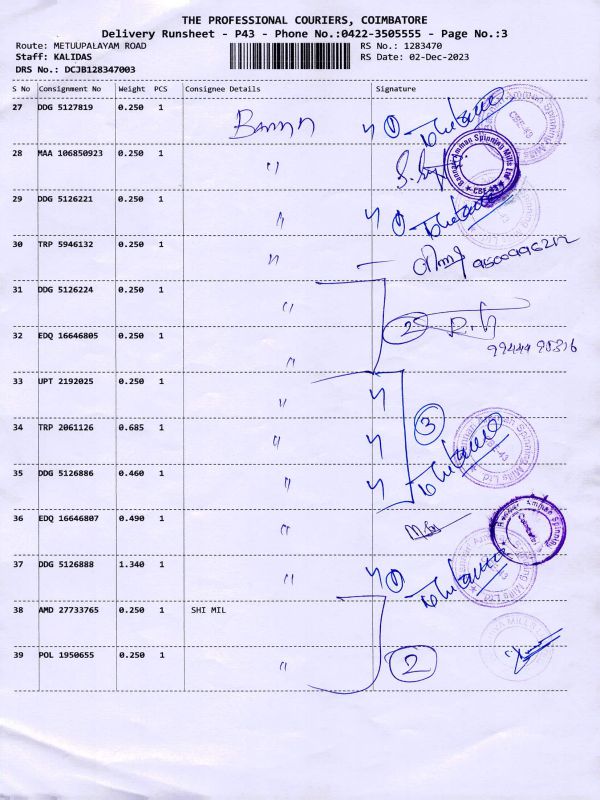 THE PROFESSIONAL COURIERS, COIMBATORE
Delivery Runsheet - P43 - Phone No.:0422-3505555 - Page No.:3
Route: METUUPALAYAM ROAD
RS No.: 1283470
Staff: KALIDAS
RS Date: 02-Dec-2023
DRS No.: DCJB128347003
S No Consignment No Weight PCS Consignee Details Signature
27 DDG 5127819 0.250 1
28 MAA 106850923 0.250 1 "
Bannari Amman Spinning Mills Ltd
CBE-43
29 DDG 5126221 0.250 1 "
30 TRP 5946132 0.250 1 " 9500996212
31 DDG 5126224 0.250 1 " 2
32 EDQ 16646805 0.250 1 "
33 UPT 2192025 0.250 1 "
34 TRP 2061126 0.685 1 " 3
35 DDG 5126886 0.460 1 "
36 EDQ 16646807 0.490 1 "
37 DDG 5126888 1.340 1 " 1
38 AMD 27733765 0.250 1 SHI MIL
39 POL 1950655 0.250 1 " 2